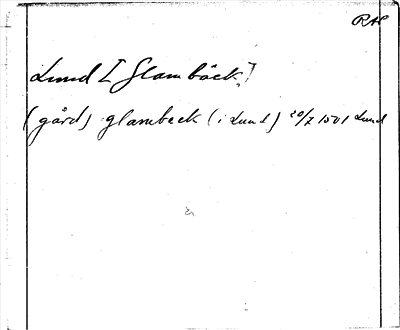 RAP
Lund [Glambäck?]
(gård) glambeck (i Lund) 20/7 1501 Lund